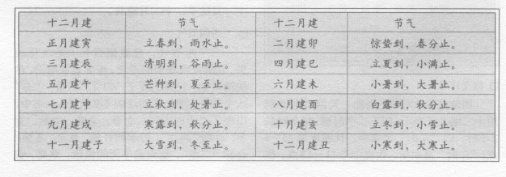 十二月建 节气 十二月建 节气
正月建寅 立春到，雨水止。 二月建卯 惊蛰到，春分止。
三月建辰 清明到，谷雨止。 四月建巳 立夏到，小满止。
五月建午 芒种到，夏至止。 六月建未 小暑到，大暑止。
七月建申 立秋到，处暑止。 八月建酉 白露到，秋分止。
九月建戌 寒露到，秋分止。 十月建亥 立冬到，小雪止。
十一月建子 大雪到，冬至止。 十二月建丑 小寒到，大寒止。